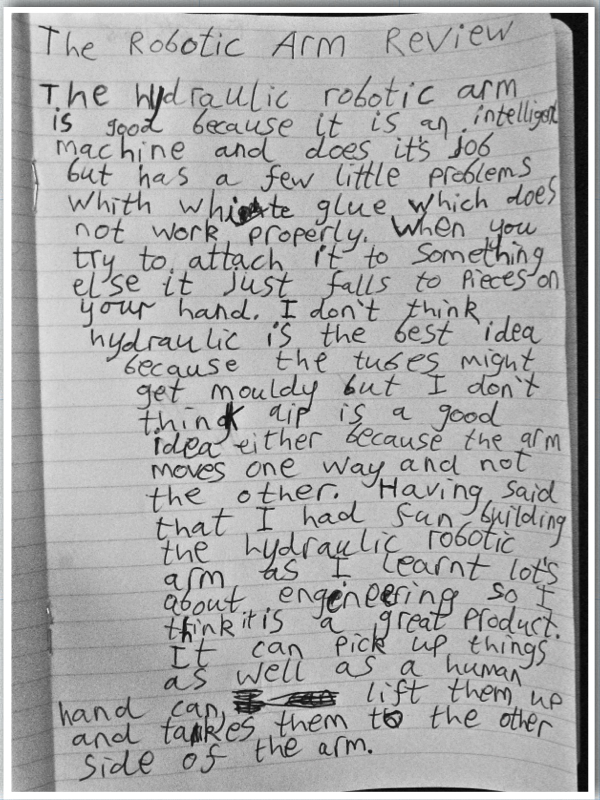 The Robotic Arm Review
The hydraulic robotic arm
is good because it is an intelligent
machine and does it's job
but has a few little problems
whith white glue which does
not work properly. When you
try to attach it to something
else it just falls to pieces on
your hand. I don't think
hydraulic is the best idea
because the tubes might
get mouldy but I don't
think air is a good
idea either because the arm
moves one way and not
the other. Having said
that I had fun building
the hydraulic robotic
arm as I learnt lot's
about engeneering so I
think it is a great product.
It can pick up things
as well as a human
hand can, lift them up
and takes them to the other
side of the arm.